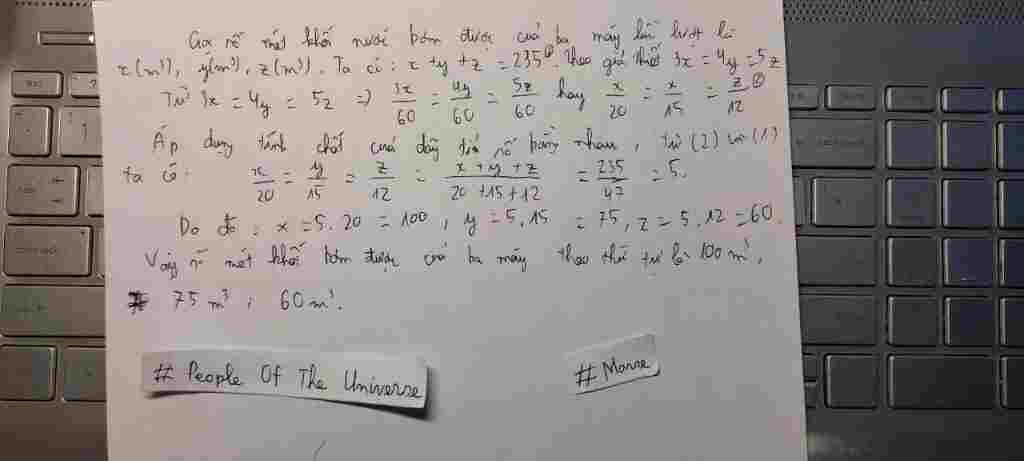 Gọi số mét khối nước bơm được của ba máy lần lượt là
x(m³), y(m³), z(m³). Ta có: x + y + z = 235 (1). Theo giả thiết 3x = 4y = 5z
Từ 3x = 4y = 5z => 3x/60 = 4y/60 = 5z/60 hay x/20 = x/15 = z/12 (2)
Áp dụng tính chất của dãy tỉ số bằng nhau, từ (2) và (1)
ta có: x/20 = y/15 = z/12 = x + y + z/20 + 15 + 12 = 235/47 = 5.
Do đó: x = 5.20 = 100, y = 5.15 = 75, z = 5.12 = 60.
Vậy số mét khối bơm được của ba máy theo thứ tự là 100 m³,
75 m³; 60 m³.
# People Of The Universe